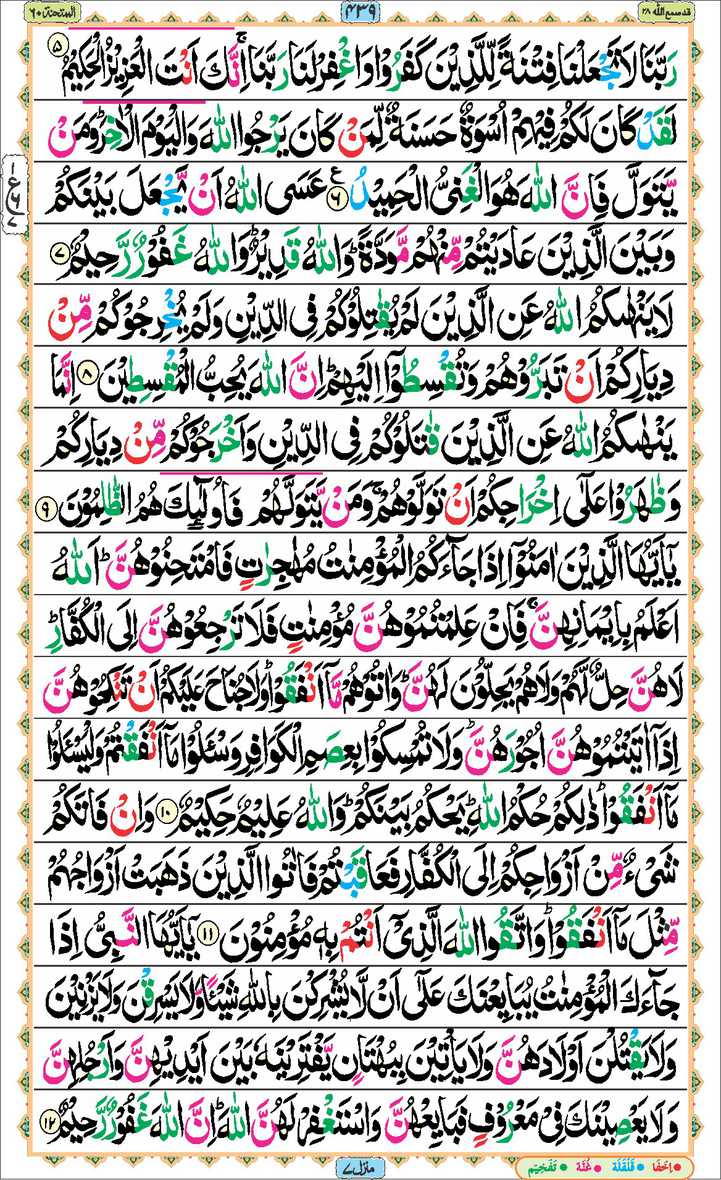 قد سمع الله ٢٨ ٤٣٩ الممتحنة ٦٠
رَبَّنَا لَا تَجْعَلْنَا فِتْنَةً لِّلَّذِيْنَ كَفَرُوْا وَاغْفِرْ لَنَا رَبَّنَا ۚ اِنَّكَ اَنْتَ الْعَزِيْزُ الْحَكِيْمُ ۵
لَقَدْ كَانَ لَكُمْ فِيْهِمْ اُسْوَةٌ حَسَنَةٌ لِّمَنْ كَانَ يَرْجُوا اللّٰهَ وَالْيَوْمَ الْاٰخِرَ ؕ وَمَنْ
يَّتَوَلَّ فَاِنَّ اللّٰهَ هُوَ الْغَنِىُّ الْحَمِيْدُ ۶ ع عَسَى اللّٰهُ اَنْ يَّجْعَلَ بَيْنَكُمْ
وَبَيْنَ الَّذِيْنَ عَادَيْتُمْ مِّنْهُمْ مَّوَدَّةً ؕ وَاللّٰهُ قَدِيْرٌ ؕ وَاللّٰهُ غَفُوْرٌ رَّحِيْمٌ ۷
لَا يَنْهٰىكُمُ اللّٰهُ عَنِ الَّذِيْنَ لَمْ يُقَاتِلُوْكُمْ فِى الدِّيْنِ وَلَمْ يُخْرِجُوْكُمْ مِّنْ
دِيَارِكُمْ اَنْ تَبَرُّوْهُمْ وَتُقْسِطُوْۤا اِلَيْهِمْ ؕ اِنَّ اللّٰهَ يُحِبُّ الْمُقْسِطِيْنَ ۸ اِنَّمَا
يَنْهٰىكُمُ اللّٰهُ عَنِ الَّذِيْنَ قَاتَلُوْكُمْ فِى الدِّيْنِ وَاَخْرَجُوْكُمْ مِّنْ دِيَارِكُمْ
وَظَاهَرُوْا عَلٰٓى اِخْرَاجِكُمْ اَنْ تَوَلَّوْهُمْ ۚ وَمَنْ يَّتَوَلَّهُمْ فَاُولٰٓئِكَ هُمُ الظّٰلِمُوْنَ ۹
يٰۤاَيُّهَا الَّذِيْنَ اٰمَنُوْۤا اِذَا جَآءَكُمُ الْمُؤْمِنٰتُ مُهٰجِرٰتٍ فَامْتَحِنُوْهُنَّ ؕ اَللّٰهُ
اَعْلَمُ بِاِيْمَانِهِنَّ ۚ فَاِنْ عَلِمْتُمُوْهُنَّ مُؤْمِنٰتٍ فَلَا تَرْجِعُوْهُنَّ اِلَى الْكُفَّارِ ؕ
لَا هُنَّ حِلٌّ لَّهُمْ وَلَا هُمْ يَحِلُّوْنَ لَهُنَّ ؕ وَاٰتُوْهُمْ مَّاۤ اَنْفَقُوْا ؕ وَلَا جُنَاحَ عَلَيْكُمْ اَنْ تَنْكِحُوْهُنَّ
اِذَاۤ اٰتَيْتُمُوْهُنَّ اُجُوْرَهُنَّ ؕ وَلَا تُمْسِكُوْا بِعِصَمِ الْكَوَافِرِ وَسْئَلُوْا مَاۤ اَنْفَقْتُمْ وَلْيَسْئَلُوْا
مَاۤ اَنْفَقُوْا ؕ ذٰلِكُمْ حُكْمُ اللّٰهِ ؕ يَحْكُمُ بَيْنَكُمْ ؕ وَاللّٰهُ عَلِيْمٌ حَكِيْمٌ ۱۰ وَاِنْ فَاتَكُمْ
شَىْءٌ مِّنْ اَزْوَاجِكُمْ اِلَى الْكُفَّارِ فَعَاقَبْتُمْ فَاٰتُوا الَّذِيْنَ ذَهَبَتْ اَزْوَاجُهُمْ
مِّثْلَ مَاۤ اَنْفَقُوْا ؕ وَاتَّقُوا اللّٰهَ الَّذِىْۤ اَنْتُمْ بِهٖ مُؤْمِنُوْنَ ۱۱ يٰۤاَيُّهَا النَّبِىُّ اِذَا
جَآءَكَ الْمُؤْمِنٰتُ يُبَايِعْنَكَ عَلٰٓى اَنْ لَّا يُشْرِكْنَ بِاللّٰهِ شَيْئًا وَّلَا يَسْرِقْنَ وَلَا يَزْنِيْنَ
وَلَا يَقْتُلْنَ اَوْلَادَهُنَّ وَلَا يَاْتِيْنَ بِبُهْتَانٍ يَّفْتَرِيْنَهٗ بَيْنَ اَيْدِيْهِنَّ وَاَرْجُلِهِنَّ
وَلَا يَعْصِيْنَكَ فِىْ مَعْرُوْفٍ فَبَايِعْهُنَّ وَاسْتَغْفِرْ لَهُنَّ اللّٰهَ ؕ اِنَّ اللّٰهَ غَفُوْرٌ رَّحِيْمٌ ۱۲
منزل ۷
اِخْفَا قَلْقَلَة غُنَّة تَفْخِيْم